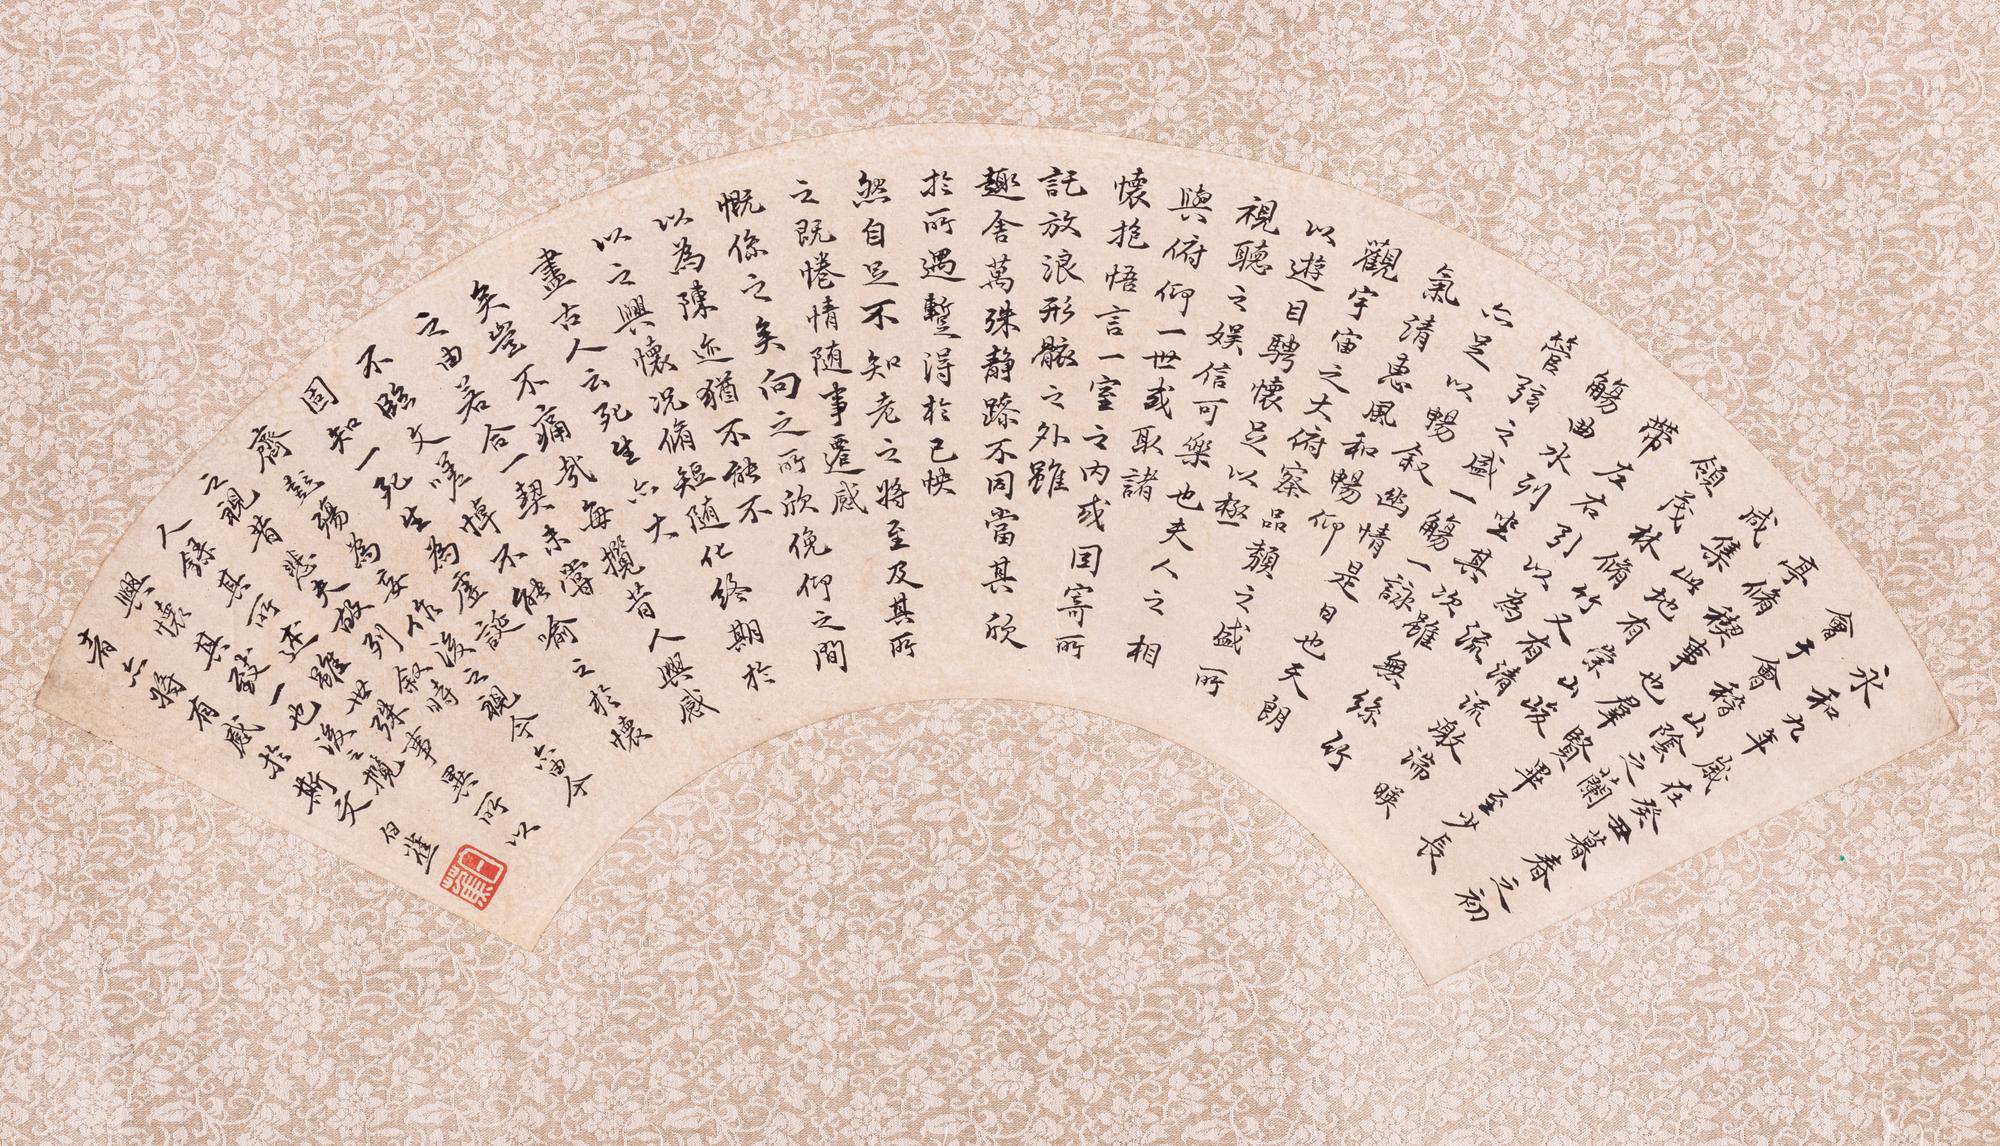 永和九年歲在癸丑暮春之初
會于會稽山陰之蘭
亭脩禊事也羣賢畢至少長
咸集此地有崇山峻
領茂林脩竹又有清流激湍暎
帶左右引以為流
觴曲水列坐其次雖無絲竹
管弦之盛一觴一詠
亦足以暢叙幽情是日也天朗
氣清惠風和暢仰
觀宇宙之大俯察品類之盛所
以遊目騁懷足以極
視聽之娛信可樂也夫人之相
與俯仰一世或取諸
懷抱悟言一室之內或因寄所
託放浪形骸之外雖
趣舍萬殊静躁不同當其欣
於所遇蹔得於己怏
然自足不知老之將至及其所
之既惓情随事遷感
慨係之矣向之所欣俛仰之間
以為陳迹猶不能不
以之興懷况脩短随化終期於
盡古人云死生亦大
矣豈不痛哉每攬昔人興感
之由若合一契未嘗
不臨文嗟悼不能喻之於懷
固知一死生為虛誕
齊彭殤為妄作後之視今亦由今
之視昔悲夫故列叙時
人錄其所述雖世殊事異所以
興懷其致一也後之攬
者亦將有感於斯文
白蕉
白蕉